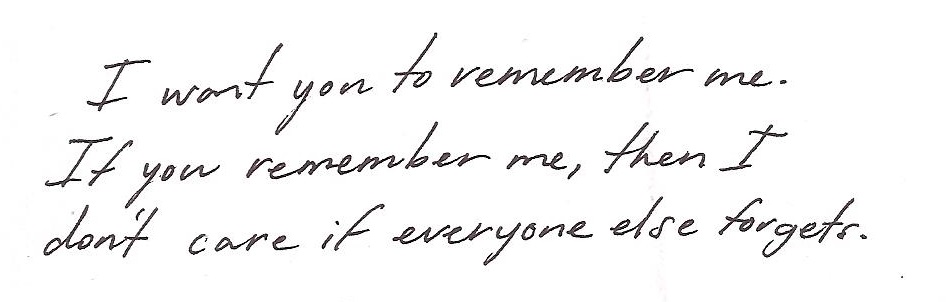 I want you to remember me.
If you remember me, then I
don't care if everyone else forgets.